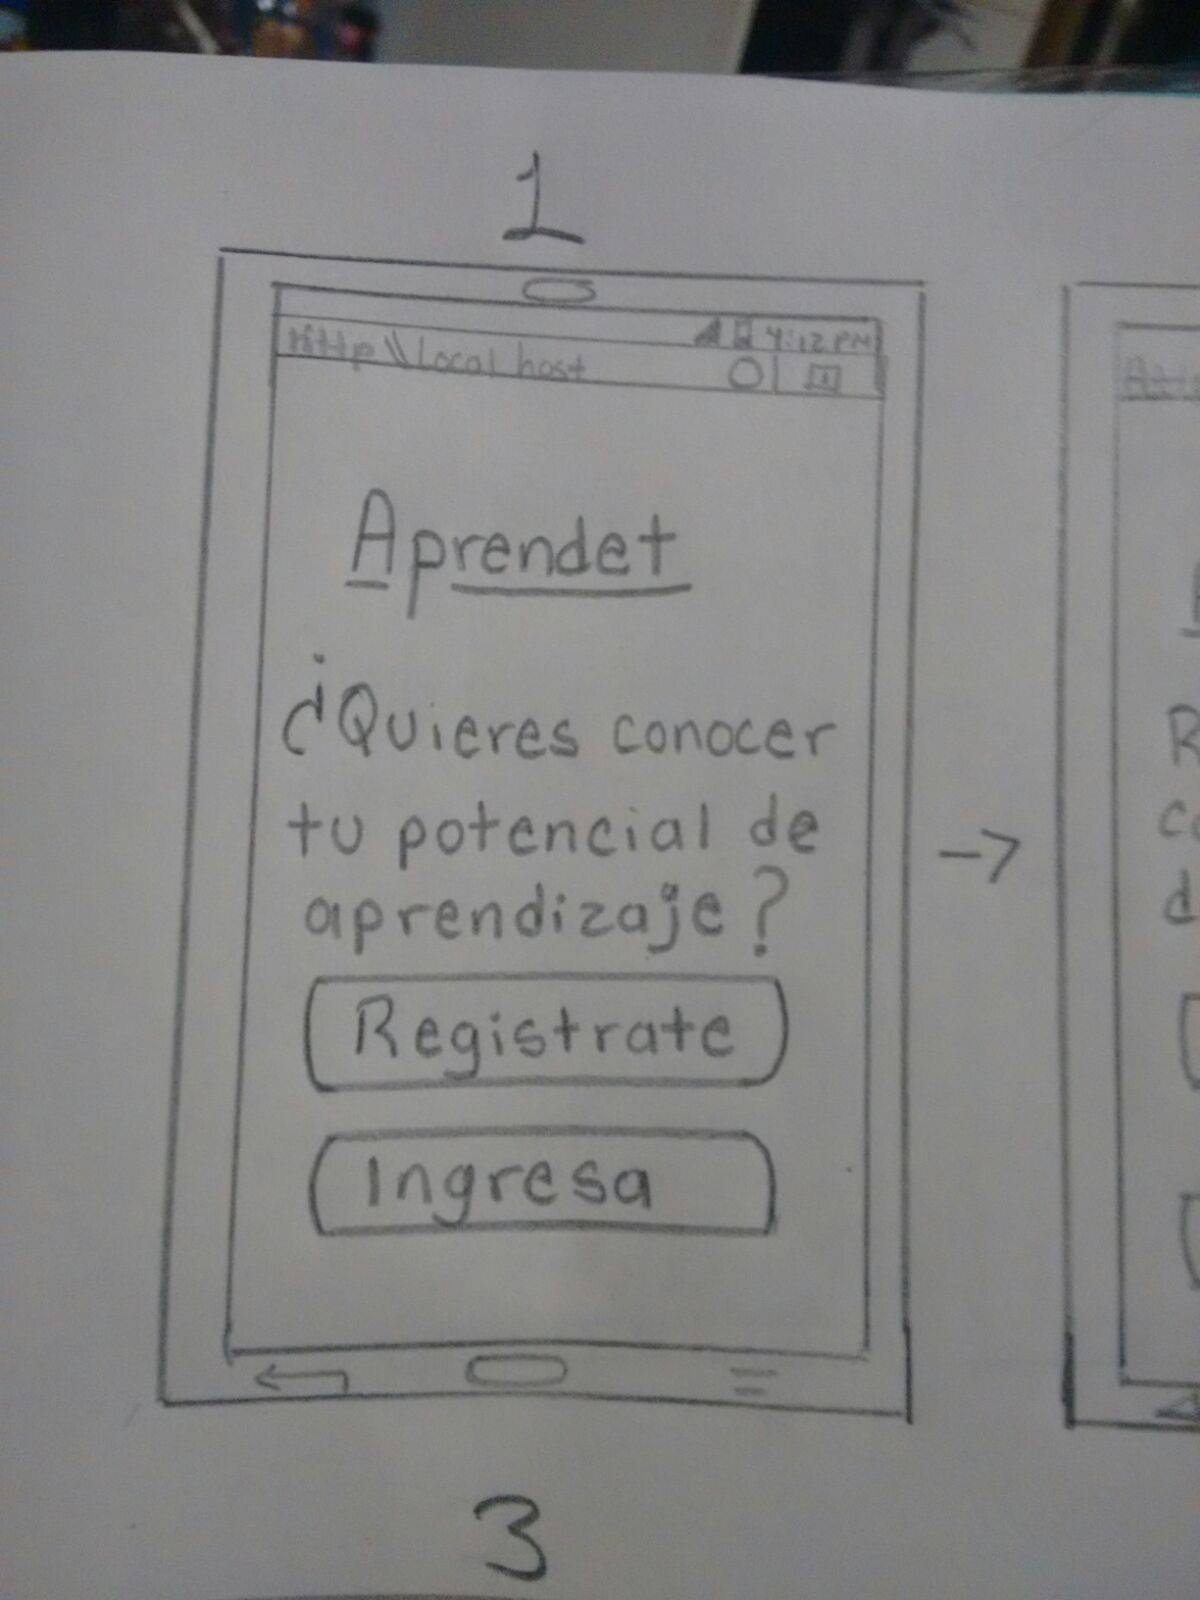 1
4:12 PM
Http \\Local host
Aprendet
¿Quieres conocer
tu potencial de
aprendizaje?
Registrate
Ingresa
R
d
3